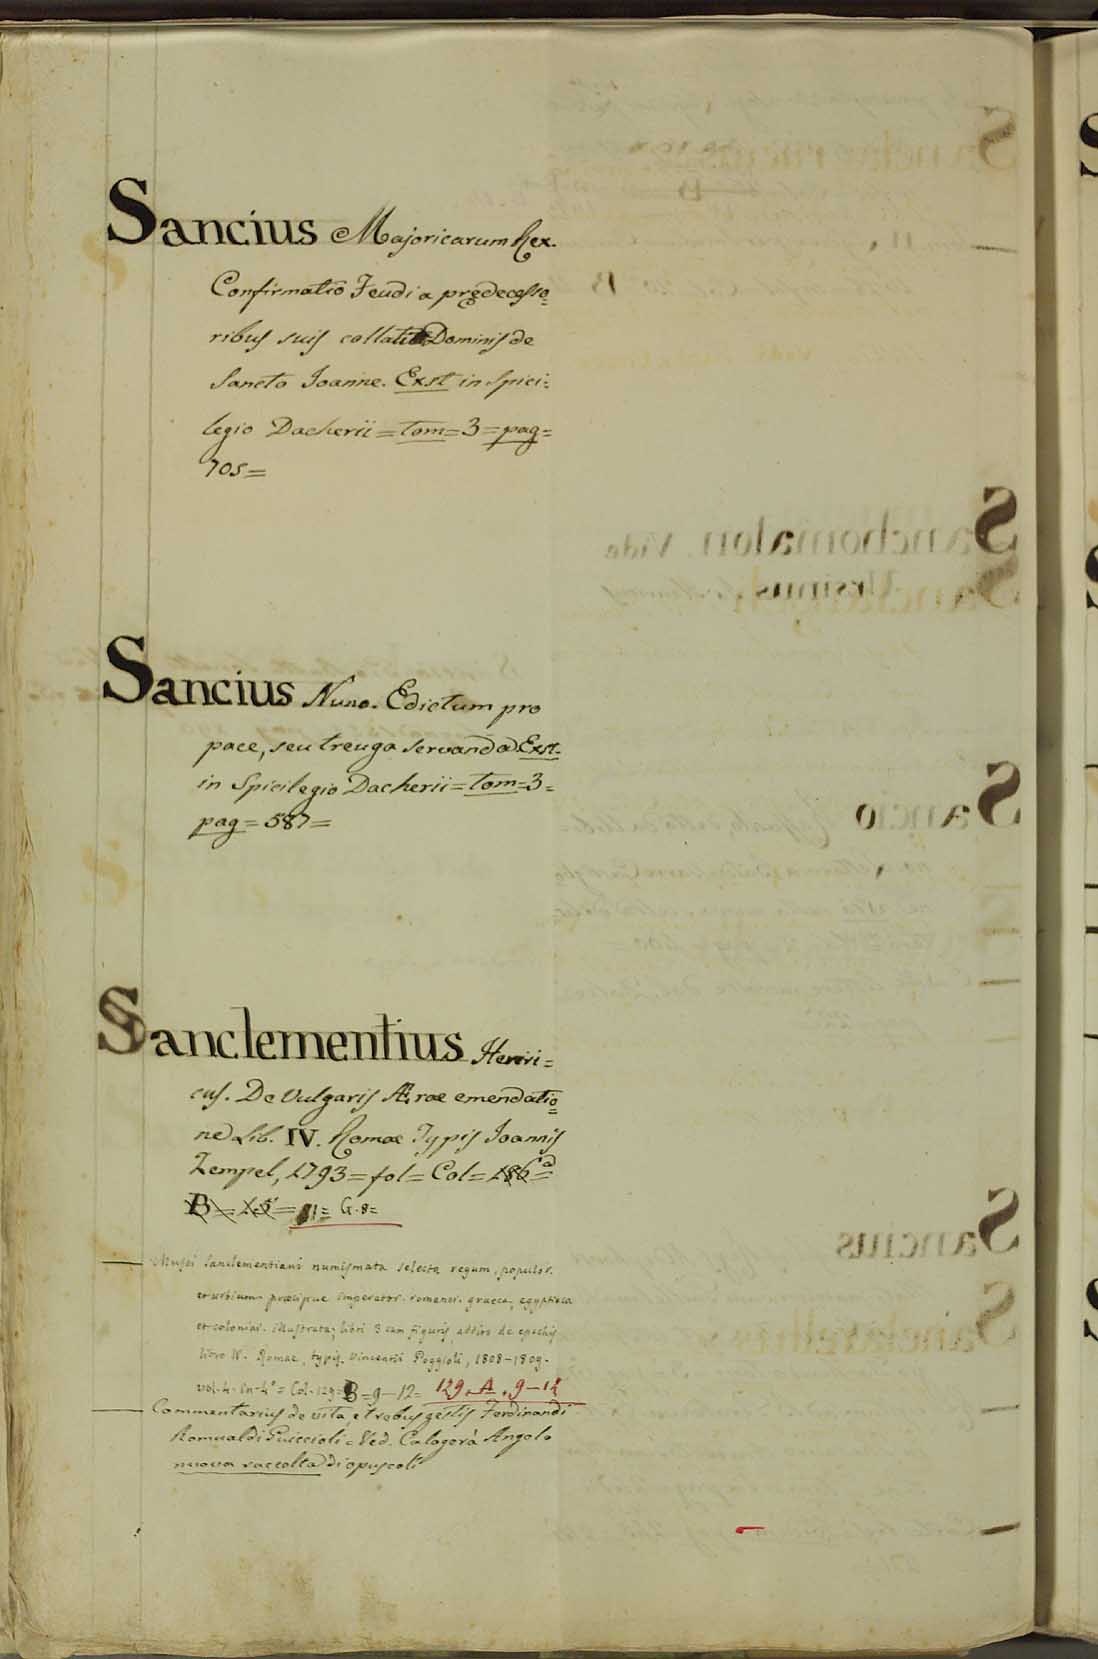 Sancius Majoricarum Rex.
Confirmatio Feudi a prędecesso=
ribus suis collati Dominis de
Sancto Joanne. Exst in Spici=
legio Dacherii = tom = 3 = pag =
705 =
Sancius Nuno. Edictum pro
pace, seu treuga servanda. Exst.
in Spicilegio Dacherii = tom = 3 =
pag = 587 =
Sanclementius Henri=
cus. De Vulgaris Æræ emendatio=
ne Lib. IV. Romæ Typis Joannis
Zempel, 1793 = fol = Col = 186 =
B = 1.5 = 11 = G. 8 =
Musei Sanclementiani numismata selecta regum, populor.
et urbium præcipue imperator. romanor. græca, egyptiaca
et coloniar. illustrata; libri 3 cum figuris additis de epochis
libro IV. Romae, typis. Vincentii Poggioli, 1808-1809.
vol. 4. in-4° = Col. 129 = B = 9 - 12 = 129. A. 9 - 12
Commentarius de vita, et rebus gestis Ferdinandi
Romualdi Guiccioli = Ved. Calogerà Angelo
nuova raccolta di opuscoli